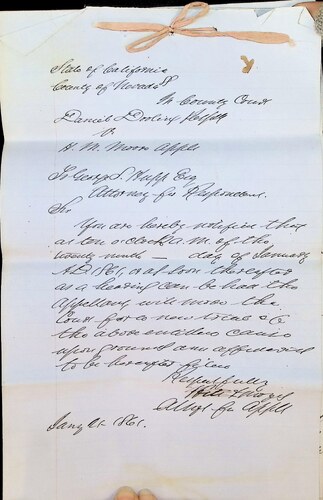 State of California
County of Nevada
In County Court
Daniel Dooling Respt
v
H. M. Moore Applt
To George S. Hupp Esq
Attorney for Respondent.
Sir
You are hereby notified that
at ten o clock A.M. of the
twenty ninth — day of January
A.D 1861, or as soon thereafter
as a hearing can be had the
Appellant will move the
Court for a new trial of
the above entitled cause
upon grounds and
to be hereafter filed
Respectfully
Attys for Applt
Jany 21 1861.